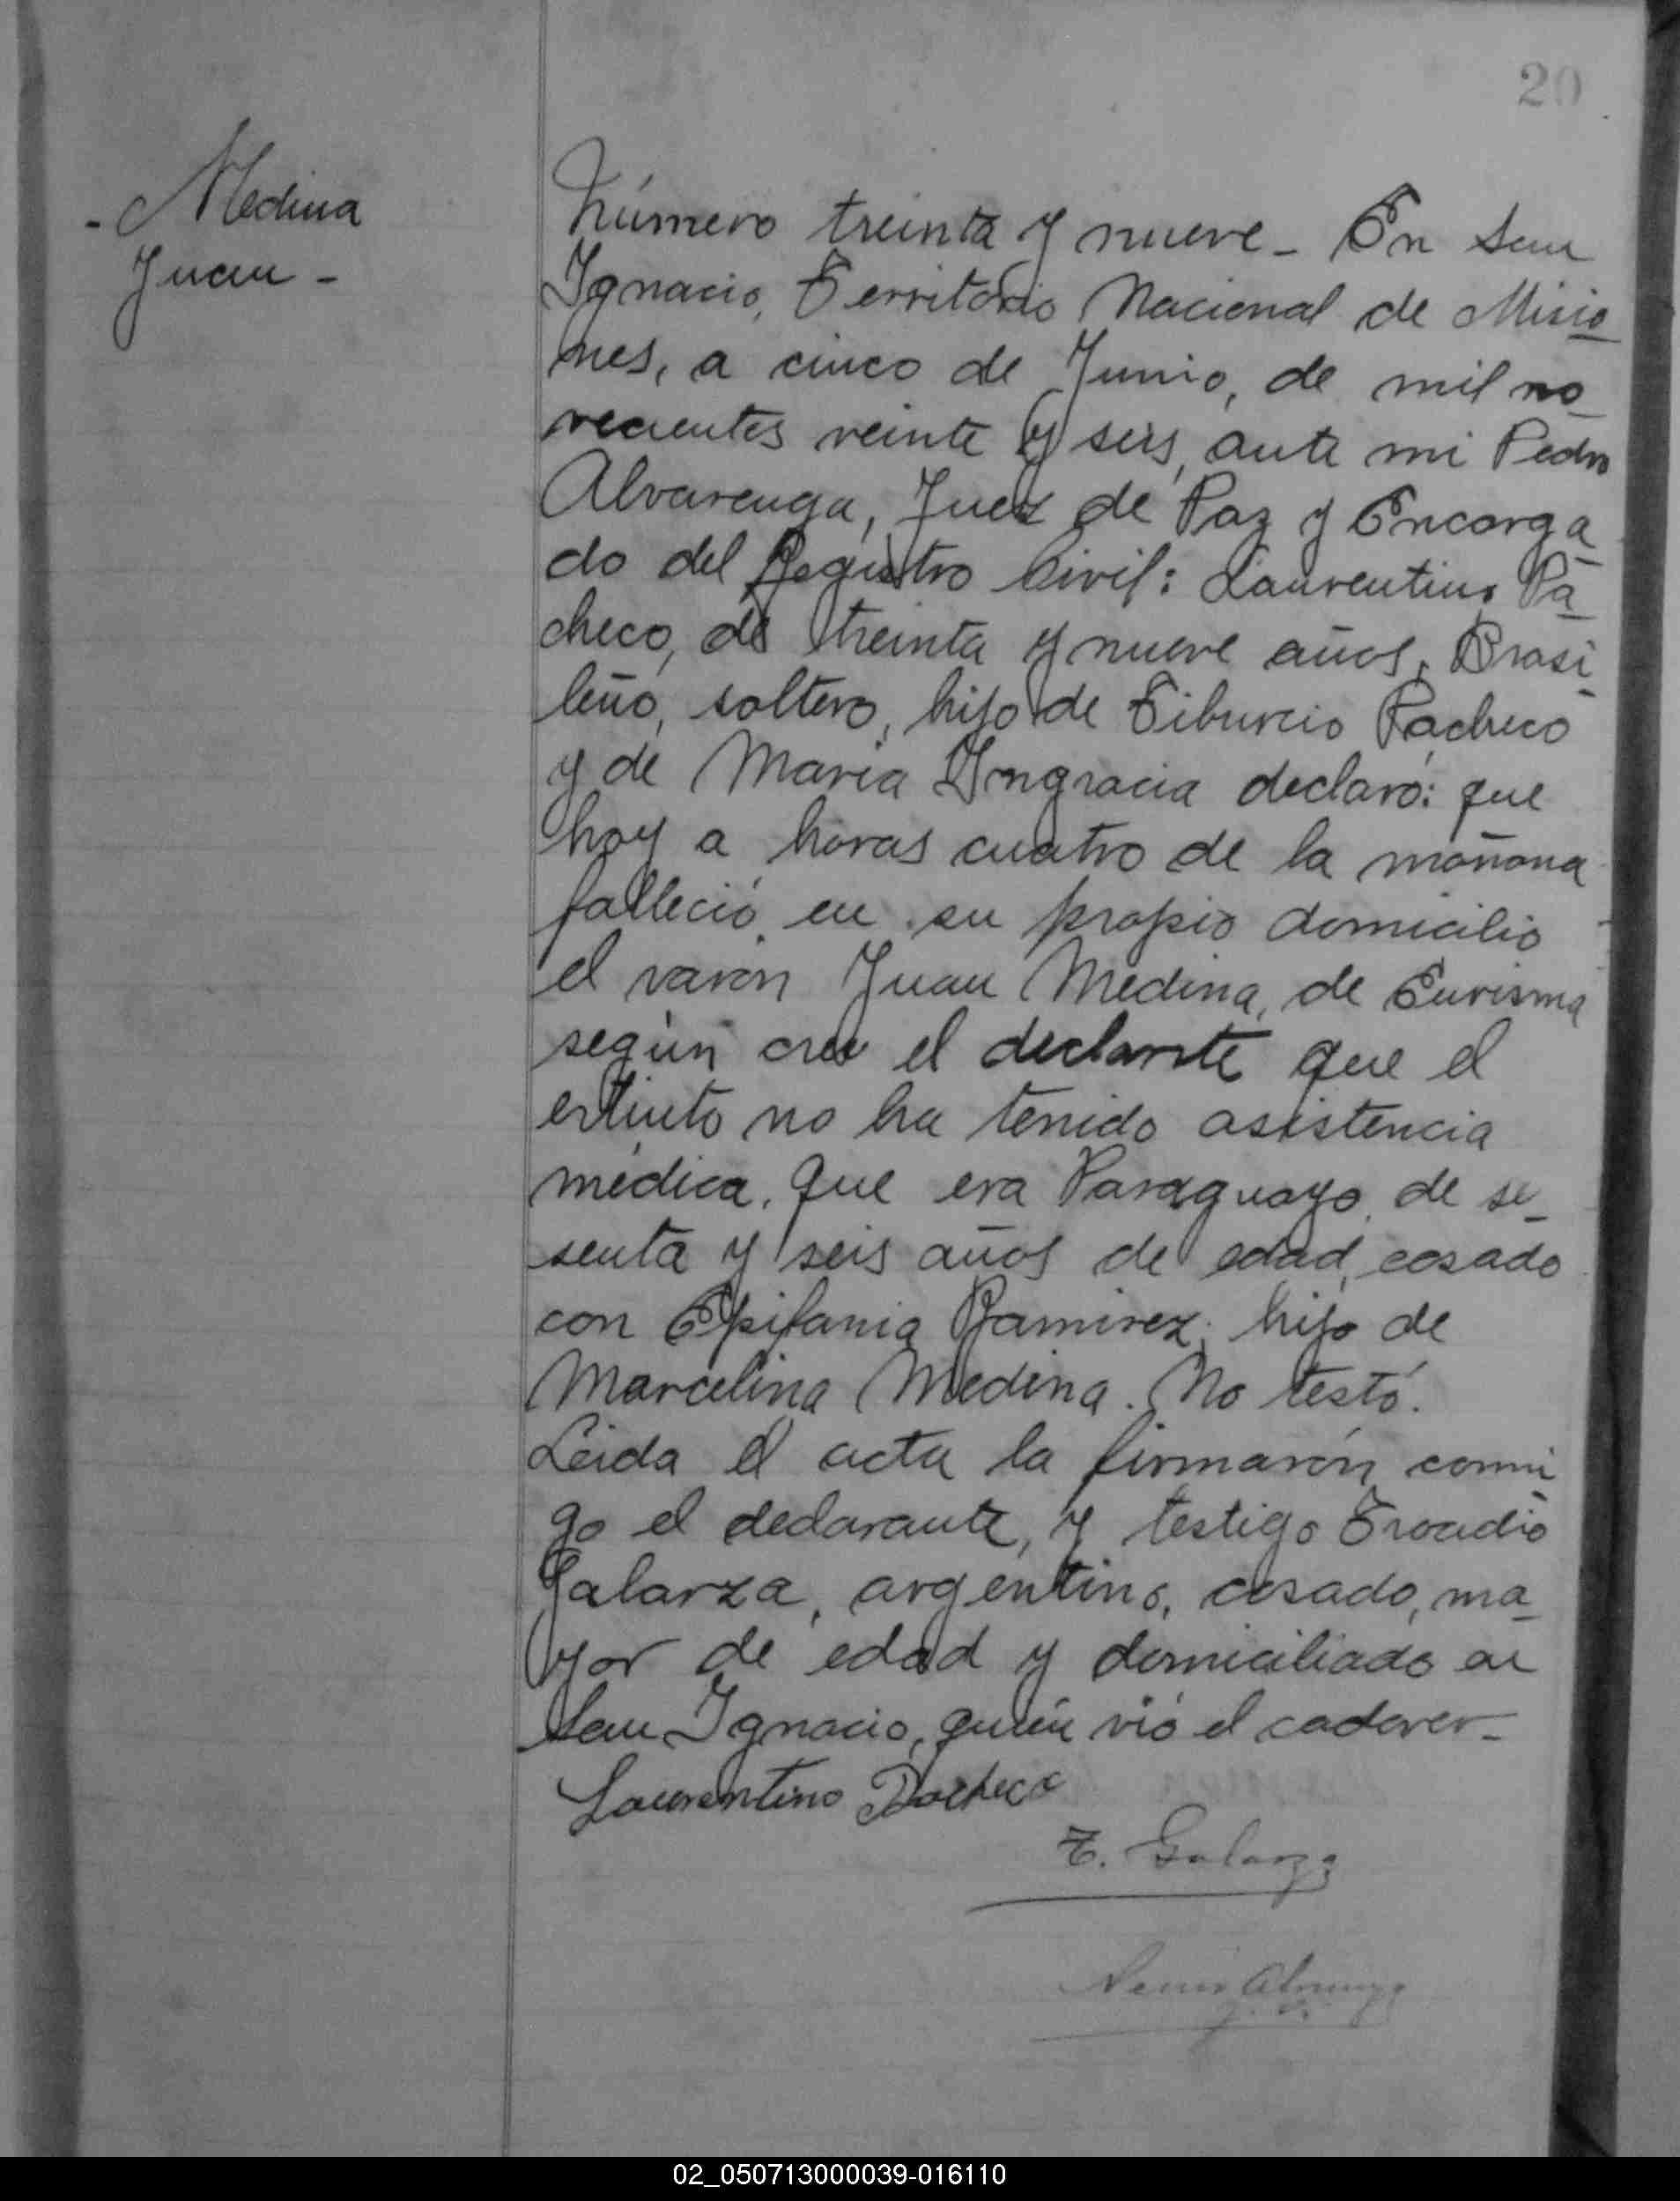 20
- Medina
Juan -
Número treinta y nueve - En San
Ignacio, Territorio Nacional de Misio
nes, a cinco de Junio, de mil no
vecientos veinte y seis, ante mi Pedro
Alvarenga, Juez de Paz y Encarga
do del Registro Civil: Laurentino Pa
checo, de treinta y nueve años, Brasi
leño, soltero, hijo de Tiburcio Pacheco
y de Maria Ingracia declaró: que
hoy a horas cuatro de la mañana
falleció en su propio domicilio
el varón Juan Medina, de Eurisma
según cree el declarante que el
extinto no ha tenido asistencia
médica, que era Paraguayo de se_
senta y seis años de edad, casado
con Epifania Ramirez, hijo de
Marcelina Medina. No testó.
Leida el acta la firmarón conmi
go el declarante, y testigo Troadio
Galarza, argentino, casado, ma_
yor de edad y domiciliado en
San Ignacio, quién vió el cadaver -
Laurentino Pacheco
T. Galarza
02_050713000039-016110